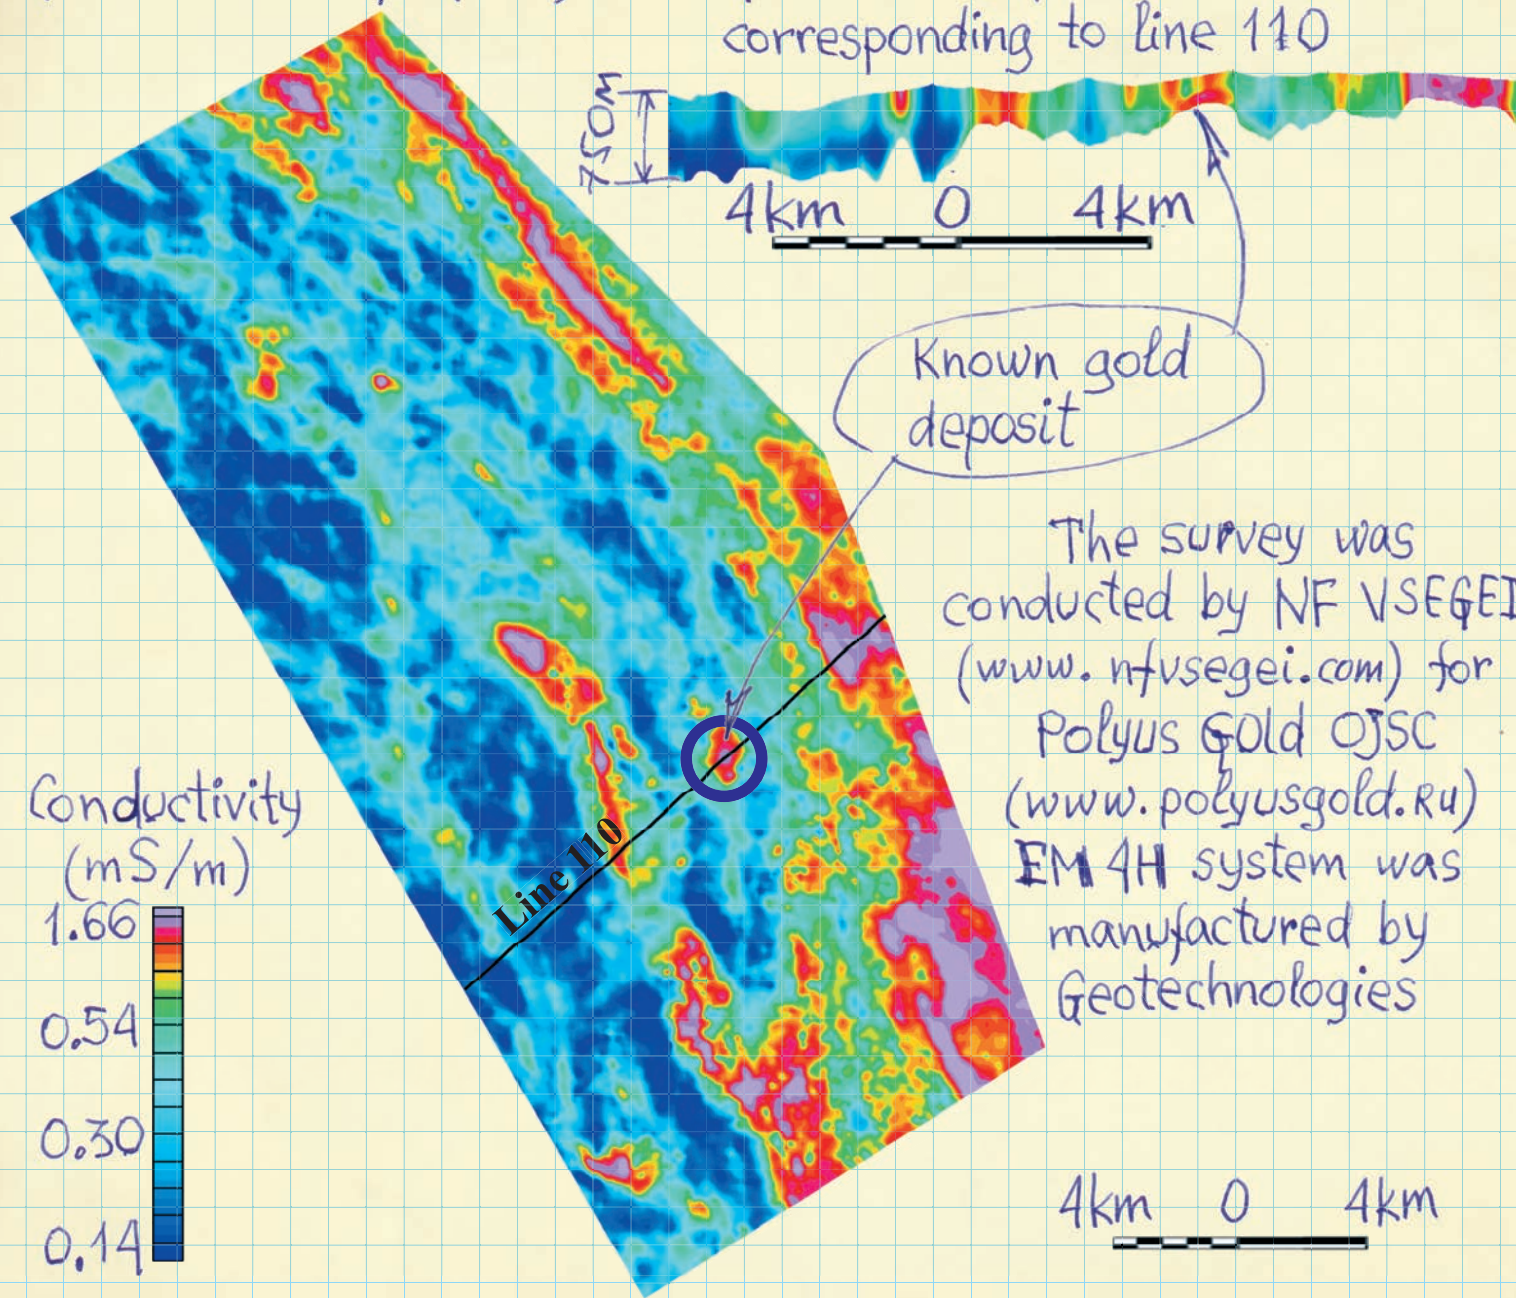 corresponding to line 110
750m
4km 0 4km
Known gold
deposit
The survey was
conducted by NF VSEGEI
(www.nfvsegei.com) for
Polyus Gold OJSC
(www.polyusgold.Ru)
EM 4H system was
manufactured by
Geotechnologies
Line 110
Conductivity
(mS/m)
1.66
0.54
0.30
0.14
4km 0 4km